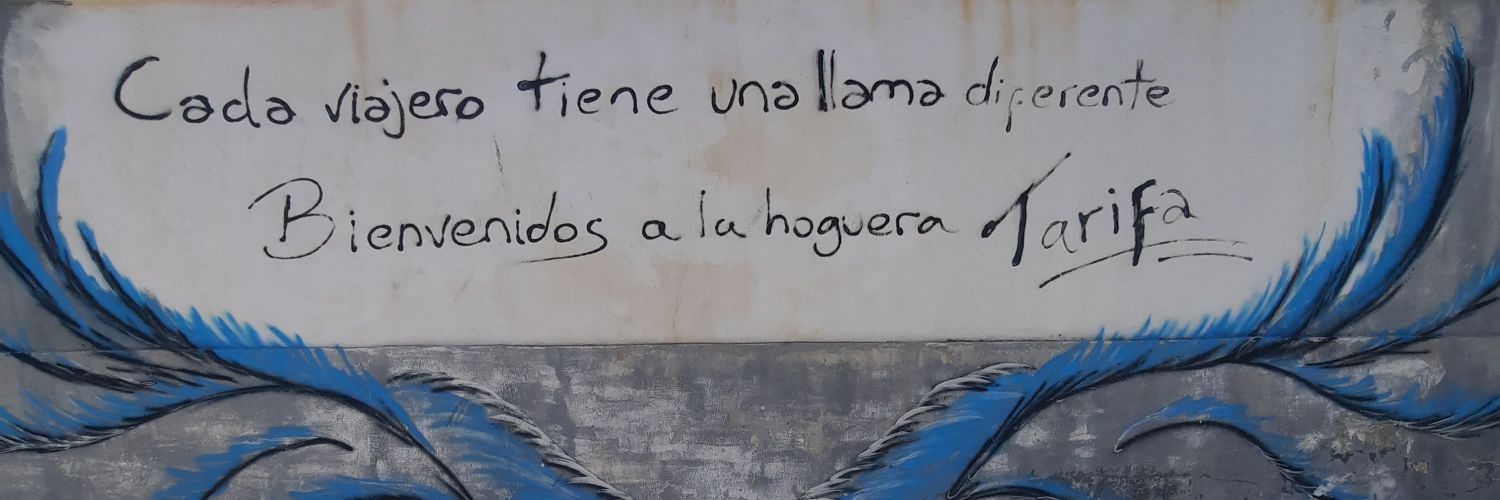 Cada viajero tiene una llama diferente
Bienvenidos a la hoguera Tarifa